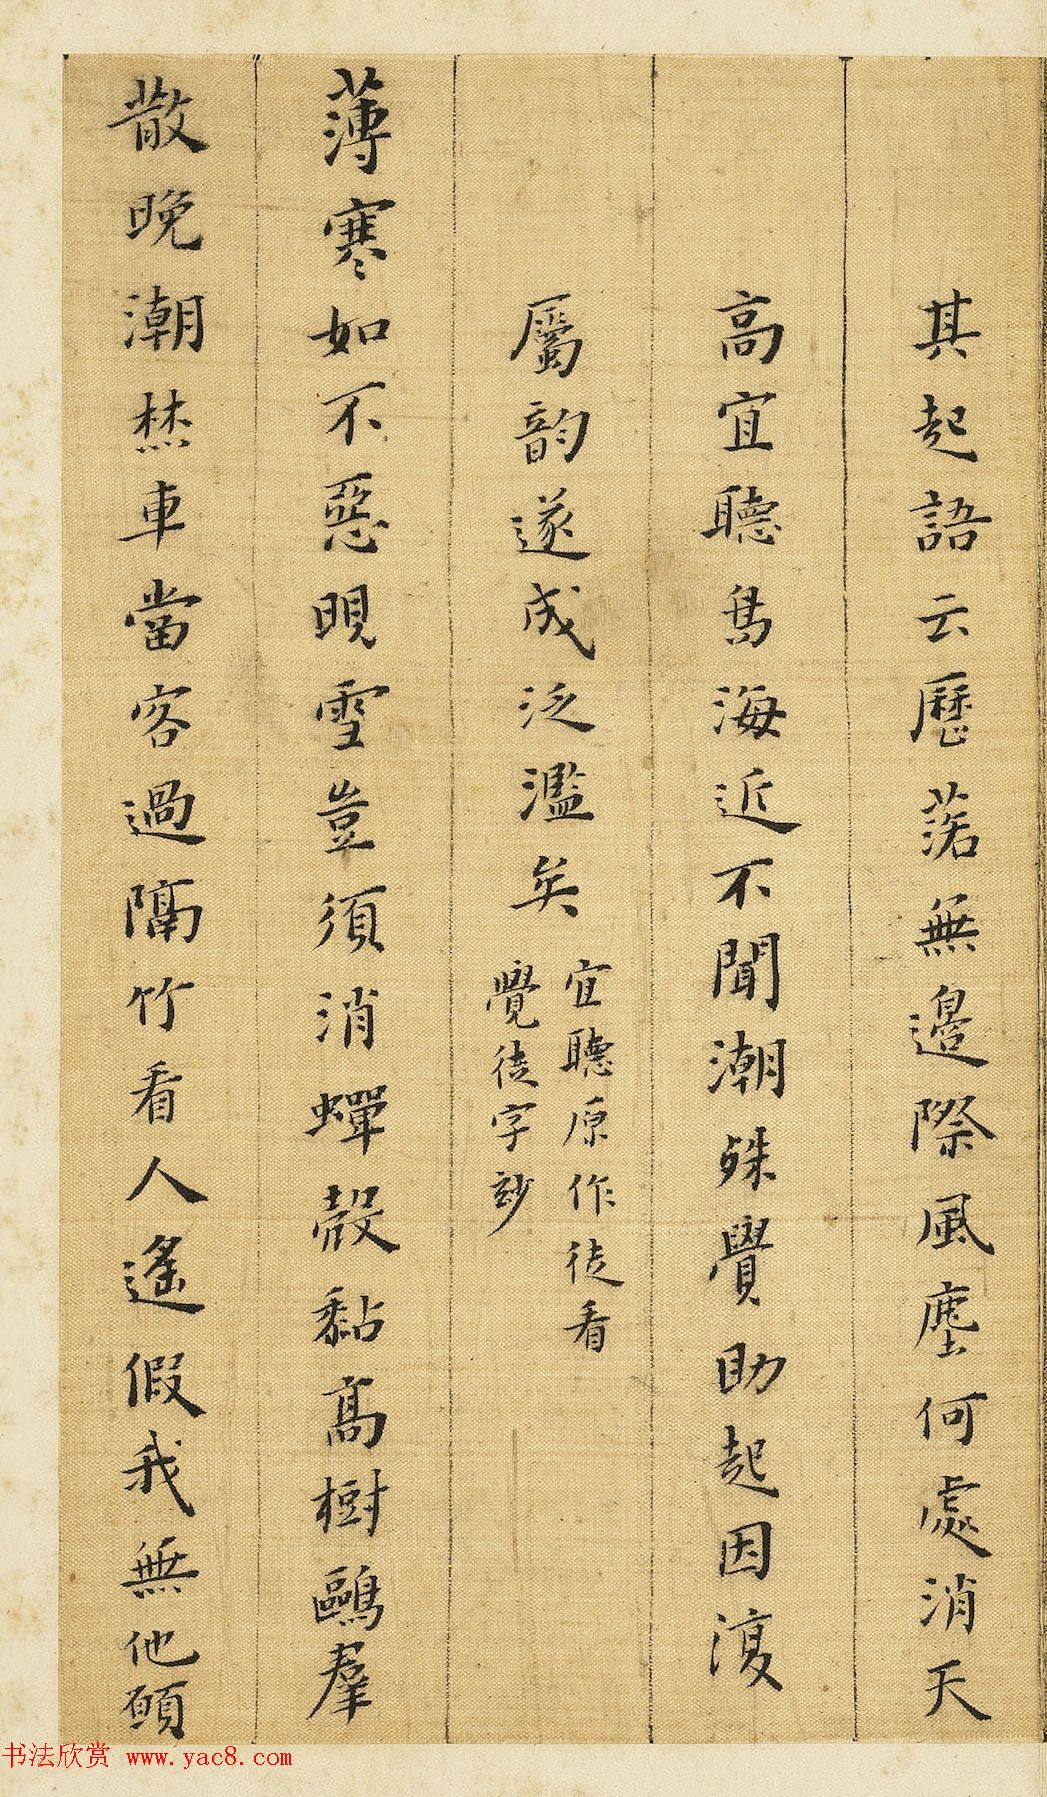 其起語云歷落無邊際風塵何處消天
高宜聽鳥海近不聞潮殊覺助起因復
屬韵遂成泛濫矣
宜聽原作徒看
覺徒字玅
薄寒如不惡晛雪豈須消蟬殼黏高樹鷗羣
散晚潮焚車當客過隔竹看人遙假我無他願
书法欣赏 www.yac8.com